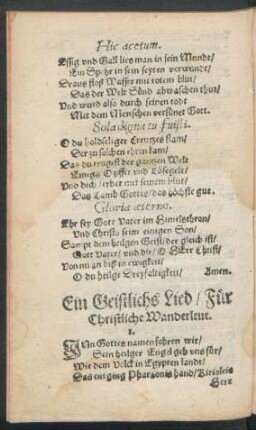 Hic acetum.
Essig vnd Gall lies man in sein Mundt/
Ein Spehr in sein seyten verwundt/
Draus floß Wasser mit rotem blut/
Das der Welt Sünd abwaschen thut/
Vnd wurd also durch seinen todt
Mit dem Menschen versünet Gott.
Sola digna tu fuisti.
O du holdseliger Creutzes stam/
Der zu solchen ehren kam/
Das du trugest der gantzen Welt
Einigs Opffer vnd Lösegelt/
Vnd dich ferbet mit seinem blut/
Das Lamb Gottes/ das höchste gut.
Gloria æterno.
Ehr sey Gott Vater im Himelsthron/
Vnd Christo seim einigen Son/
Sampt dem heilgen Geist/ der gleich ist/
Gott Vater/ vnd dir/ O HErr Christ/
Von nu an biß in ewigkeit/
O du heilge Dreyfaltigkeit/ Amen.
Ein Geistlichs Lied/ Für
Christliche Wanderleut.
1.
IN Gottes namen fahren wir/
Sein heilger Engel geh vns für/
Wie dem Volck in Egypten landt/
Das entgieng Pharaonis hand/ Kirioleis
Herr